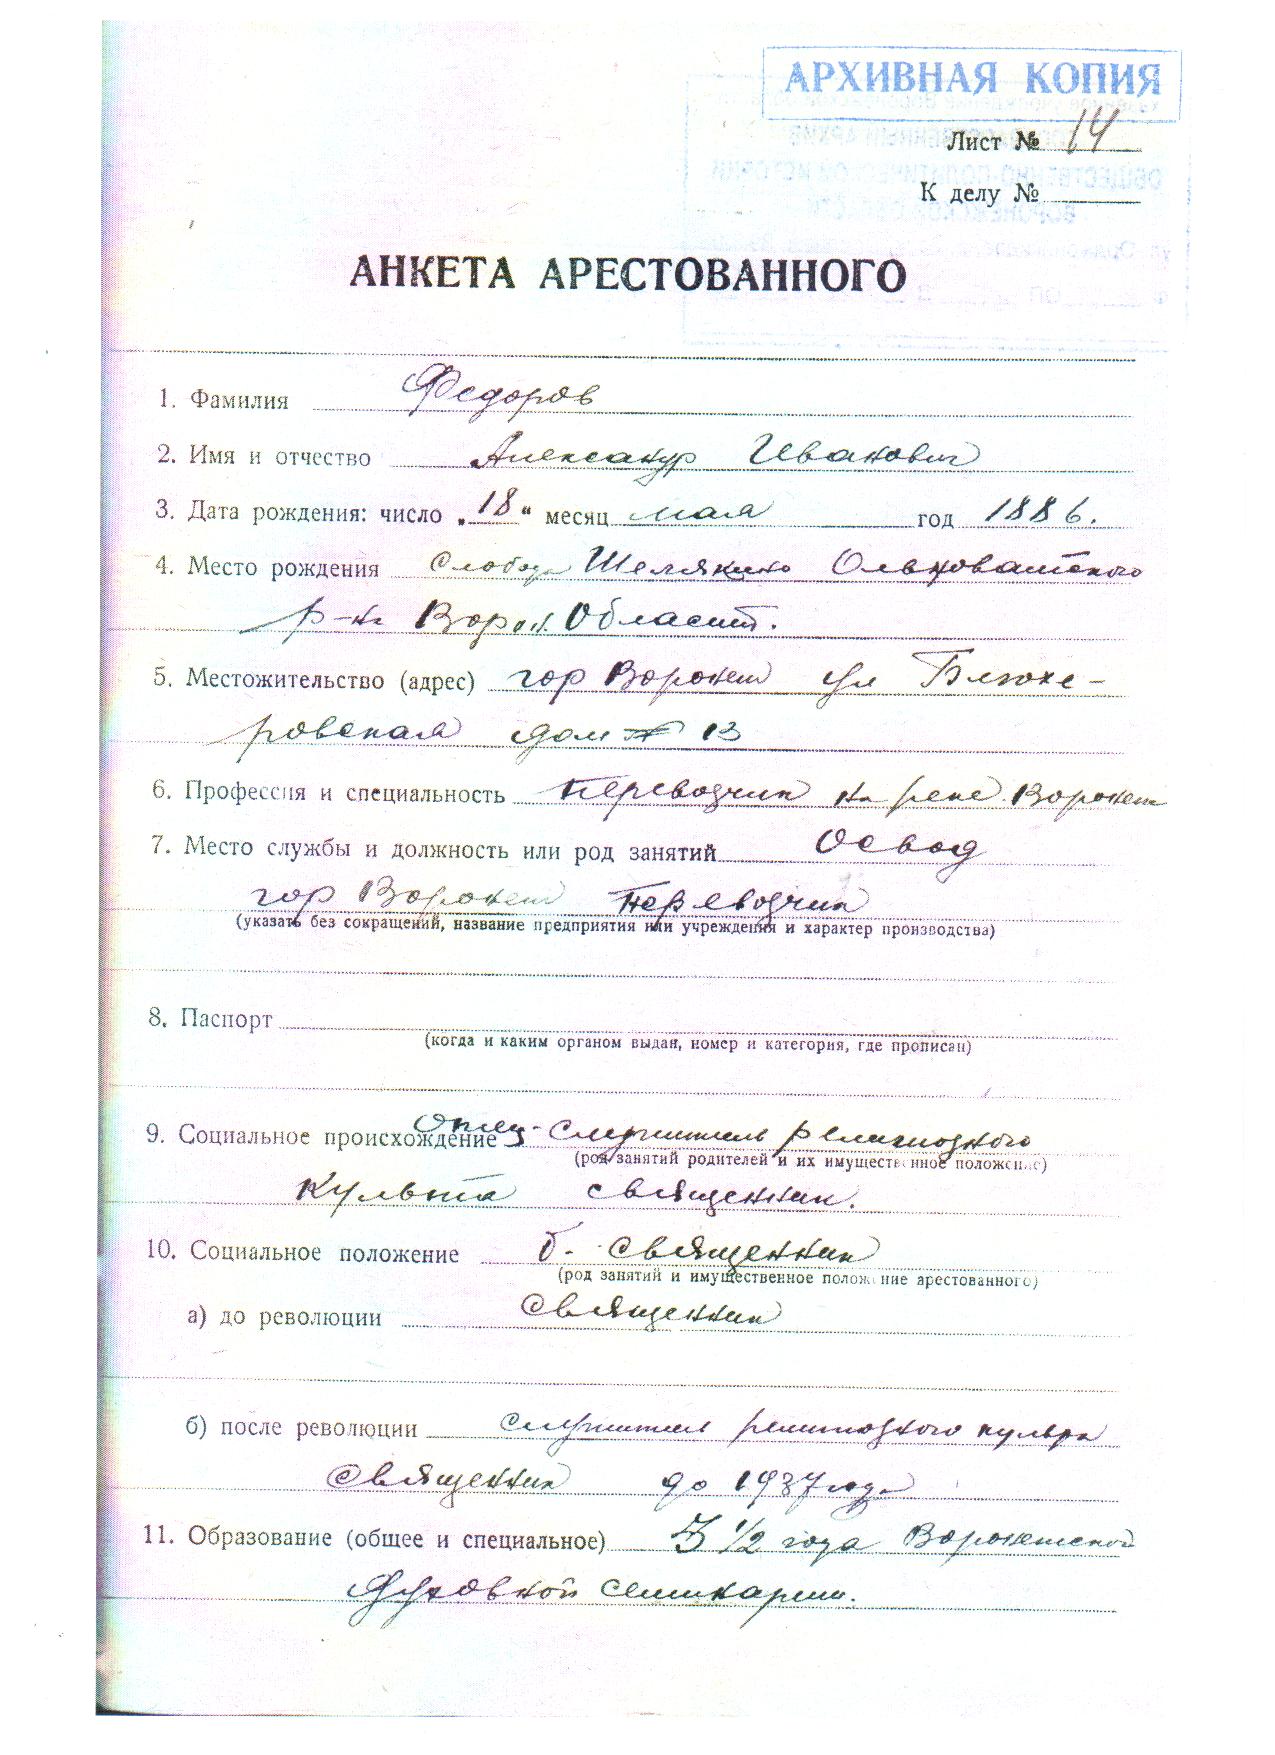 АРХИВНАЯ КОПИЯ
Лист № 14
К делу №
АНКЕТА АРЕСТОВАННОГО
1. Фамилия Федоров
2. Имя и отчество Александр Иванович
3. Дата рождения: число „18“ месяц мая год 1886.
4. Место рождения Слобода Шелякино Ольховатского
р-на Ворон. Област.
5. Местожительство (адрес) гор Воронеж ул Блюхе-
ровская дом № 13
6. Профессия и специальность Перевозчик на реке Воронеж
7. Место службы и должность или род занятий Освод
гор Воронеж Перевозчик
(указать без сокращений, название предприятия или учреждения и характер производства)
8. Паспорт
(когда и каким органом выдан, номер и категория, где прописан)
9. Социальное происхождение Отец - Служитель религиозного
(род занятий родителей и их имущественное положение)
культа священник.
10. Социальное положение б. священник
(род занятий и имущественное положение арестованного)
а) до революции Священник
б) после революции Служитель религиозного культа
Священник до 1937 года
11. Образование (общее и специальное) 3 1/2 года Воронежской
Духовной семинарии.